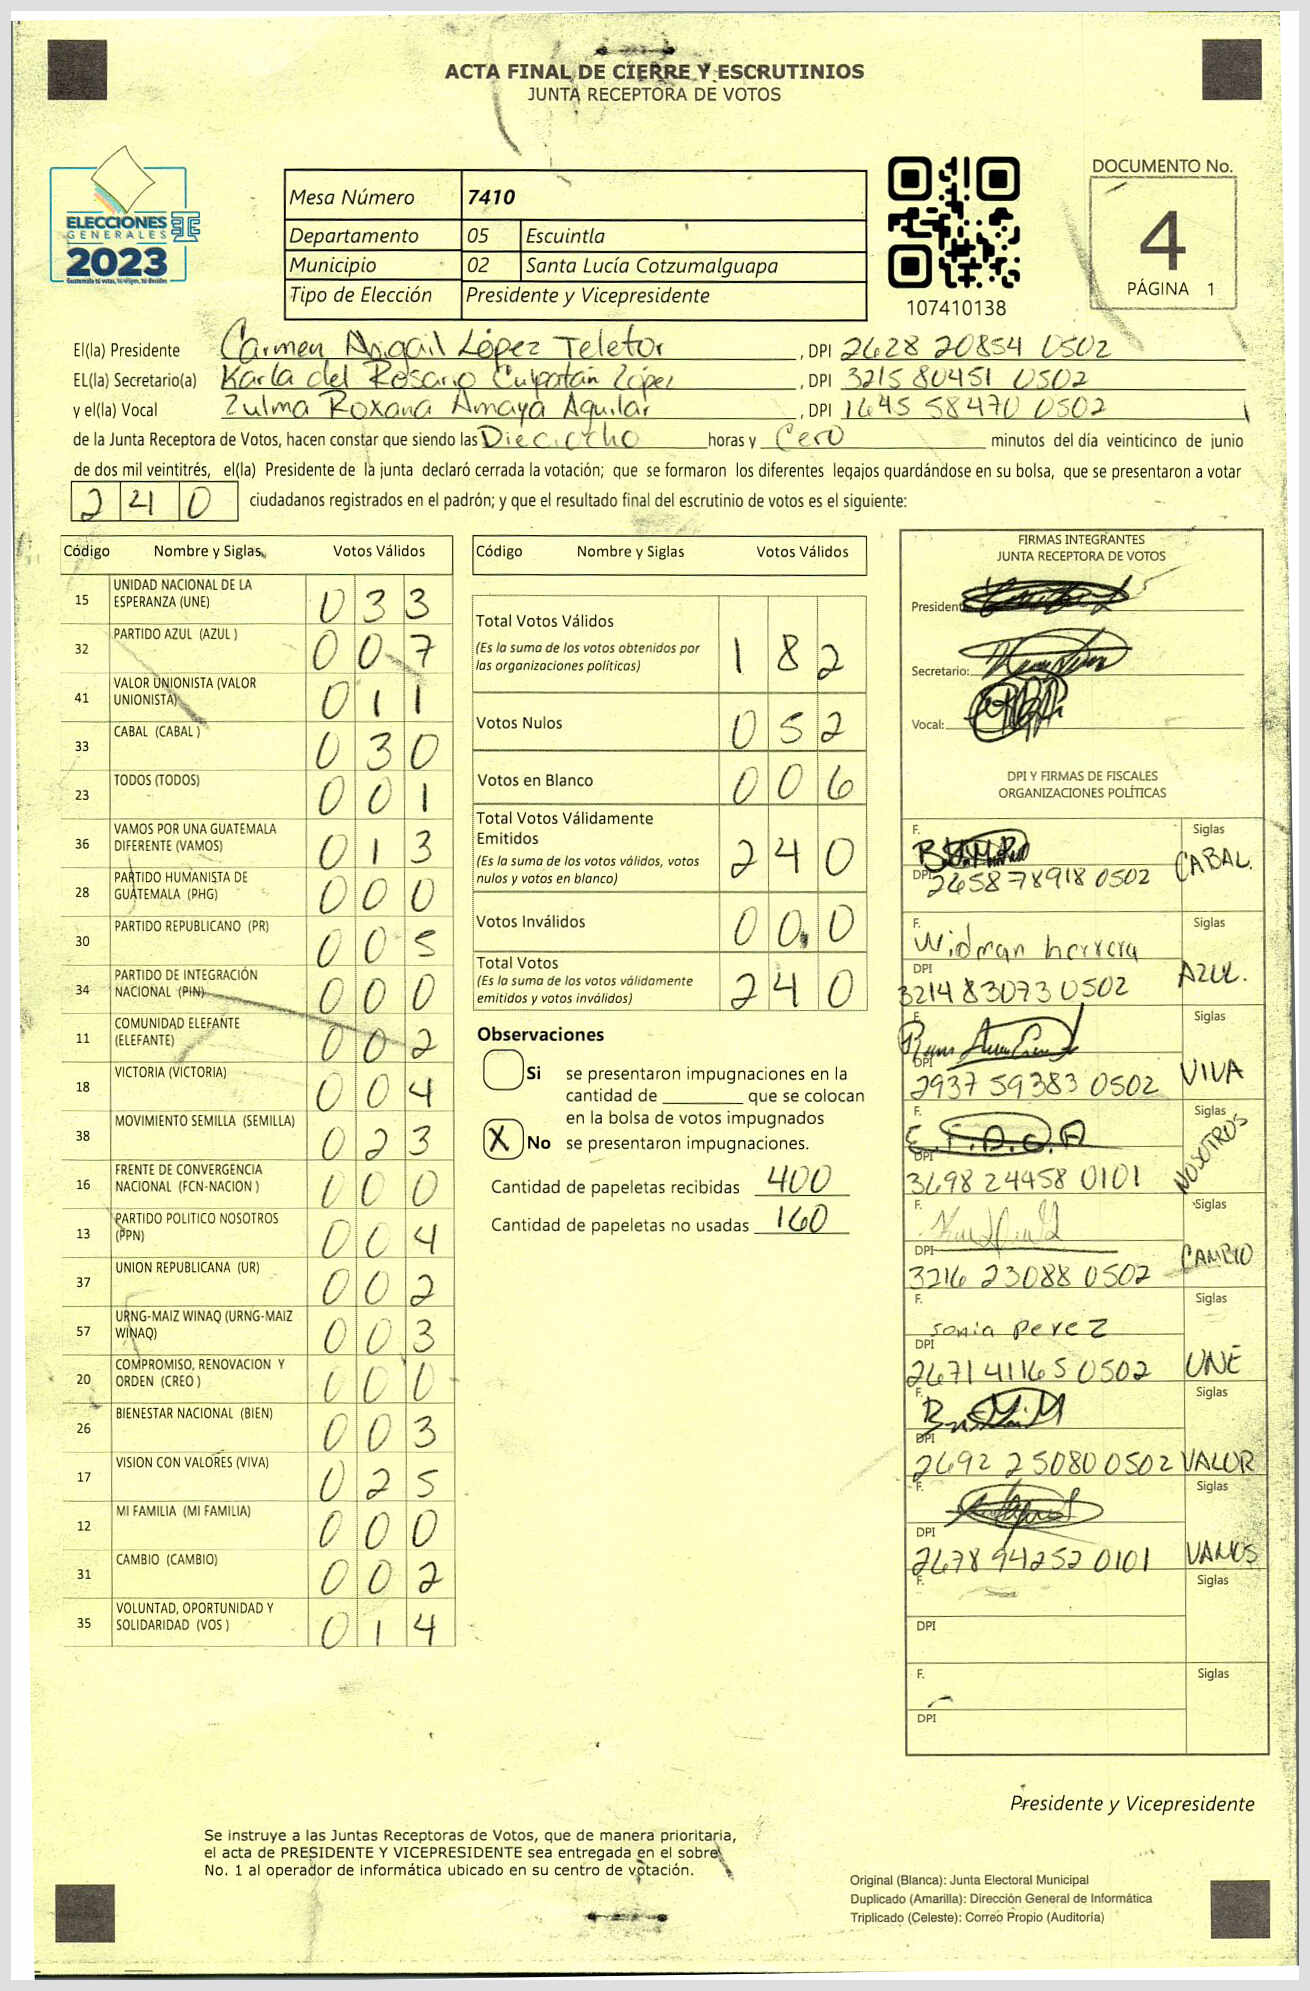 ACTA FINAL DE CIERRE Y ESCRUTINIOS
JUNTA RECEPTORA DE VOTOS
ELECCIONES
GENERALES
2023
Guatemala tú votas, tú eliges, tú decides
Mesa Número 7410
Departamento 05 Escuintla
Municipio 02 Santa Lucía Cotzumalguapa
Tipo de Elección Presidente y Vicepresidente
107410138
DOCUMENTO No.
4
PÁGINA 1
El(la) Presidente Carmen Abigail López Teletor, DPI 2628 20854 0502
EL(la) Secretario(a) Karla del Rosario Culpatán López, DPI 3215 80451 0502
y el(la) Vocal Zulma Roxana Amaya Aguilar, DPI 1645 58470 0502
de la Junta Receptora de Votos, hacen constar que siendo las Dieciocho horas y Cero minutos del día veinticinco de junio
de dos mil veintitrés, el(la) Presidente de la junta declaró cerrada la votación; que se formaron los diferentes legajos guardándose en su bolsa, que se presentaron a votar
240 ciudadanos registrados en el padrón; y que el resultado final del escrutinio de votos es el siguiente:
Código Nombre y Siglas Votos Válidos
15 UNIDAD NACIONAL DE LA ESPERANZA (UNE) 033
32 PARTIDO AZUL (AZUL ) 007
41 VALOR UNIONISTA (VALOR UNIONISTA) 011
33 CABAL (CABAL ) 030
23 TODOS (TODOS) 001
36 VAMOS POR UNA GUATEMALA DIFERENTE (VAMOS) 013
28 PARTIDO HUMANISTA DE GUATEMALA (PHG) 000
30 PARTIDO REPUBLICANO (PR) 005
34 PARTIDO DE INTEGRACIÓN NACIONAL (PIN) 000
11 COMUNIDAD ELEFANTE (ELEFANTE) 002
18 VICTORIA (VICTORIA) 004
38 MOVIMIENTO SEMILLA (SEMILLA) 023
16 FRENTE DE CONVERGENCIA NACIONAL (FCN-NACION ) 000
13 PARTIDO POLITICO NOSOTROS (PPN) 004
37 UNION REPUBLICANA (UR) 002
57 URNG-MAIZ WINAQ (URNG-MAIZ WINAQ) 003
20 COMPROMISO, RENOVACION Y ORDEN (CREO ) 000
26 BIENESTAR NACIONAL (BIEN) 003
17 VISION CON VALORES (VIVA) 025
12 MI FAMILIA (MI FAMILIA) 000
31 CAMBIO (CAMBIO) 002
35 VOLUNTAD, OPORTUNIDAD Y SOLIDARIDAD (VOS ) 014
Código Nombre y Siglas Votos Válidos
Total Votos Válidos 182
(Es la suma de los votos obtenidos por
las organizaciones políticas)
Votos Nulos 052
Votos en Blanco 006
Total Votos Válidamente
Emitidos 240
(Es la suma de los votos válidos, votos
nulos y votos en blanco)
Votos Inválidos 000
Total Votos 240
(Es la suma de los votos válidamente
emitidos y votos inválidos)
Observaciones
Si se presentaron impugnaciones en la
cantidad de ________ que se colocan
en la bolsa de votos impugnados
X No se presentaron impugnaciones.
Cantidad de papeletas recibidas 400
Cantidad de papeletas no usadas 160
FIRMAS INTEGRANTES
JUNTA RECEPTORA DE VOTOS
Presidente:
Secretario:
Vocal:
DPI Y FIRMAS DE FISCALES
ORGANIZACIONES POLÍTICAS
F. Siglas
DPI 2658 78918 0502 CABAL.
F. Widman herrera Siglas
DPI 3214 83073 0502 AZUL.
F. Siglas
DPI 2937 59383 0502 VIVA
F. Siglas
DPI 3698 24458 0101 NOSOTROS
F. Siglas
DPI 3216 23088 0502 CAMBIO
F. sonia perez Siglas
DPI 2671 41165 0502 UNE
F. Siglas
DPI 2692 25080 0502 VALOR
F. Siglas
DPI 2678 94252 0101 VAMOS
F. Siglas
DPI
F. Siglas
DPI
Presidente y Vicepresidente
Se instruye a las Juntas Receptoras de Votos, que de manera prioritaria,
el acta de PRESIDENTE Y VICEPRESIDENTE sea entregada en el sobre
No. 1 al operador de informática ubicado en su centro de votación.
Original (Blanca): Junta Electoral Municipal
Duplicado (Amarilla): Dirección General de Informática
Triplicado (Celeste): Correo Propio (Auditoría)